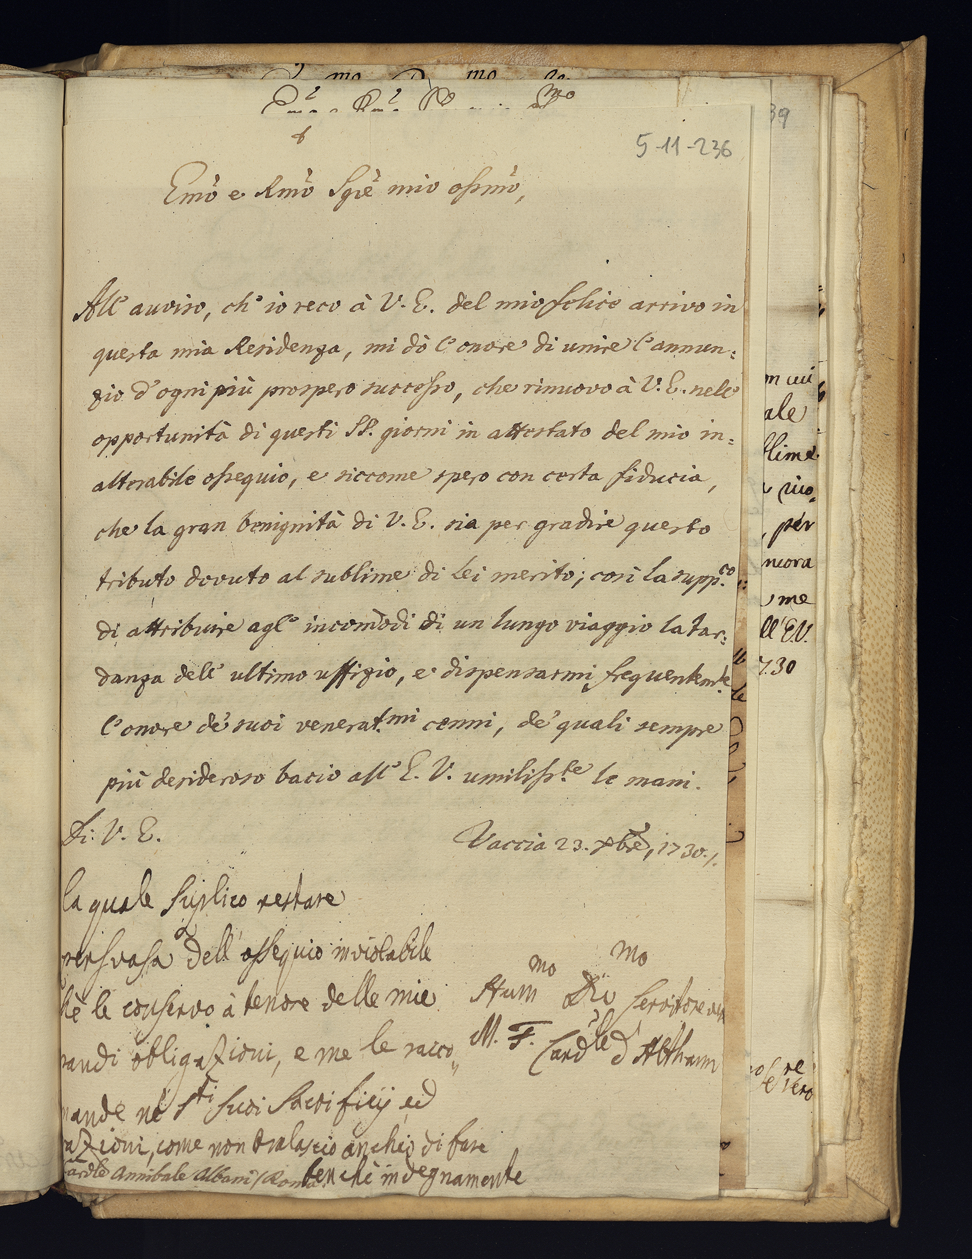 5-11-236
Emo e Rmo Sigre mio ossmo,
All' auviso, ch' io reco à V. E. del mio felice arrivo in
questa mia Residenza, mi dò l'onore di unire l'annun:
zio d'ogni più prospero successo, che rinuovo à V. E. nelle
opportunità di questi SS. giorni in attestato del mio in:
alterabile ossequio, e siccome spero con certa fiducia,
che la gran benignità di V. E. sia per gradire questo
tributo dovuto al sublime di lei merito; così la suppco
di attribuire agl' incomodi di un lungo viaggio la tar:
danza dell' ultimo uffizio, e dispensarmi frequentemte
l'onore de' suoi veneratmi cenni, de' quali sempre
più desideroso bacio all' E. V. umilisste le mani.
Di: V. E.
Vaccia 23. Xbre, 1730./.
la quale suplico restare
persvasa dell' ossequio inviolabile
chè le conservo à tenore delle mie
grandi obligazioni, e me le racco„
mande nè Sti suoi Sacrificij ed
orazioni, come non tralascio anchio di fare
benchè indegnamente
Hummo Dmo servitore
M. F. Cardle d'Althann
Cardle Annibale Albani / Roma
39
m cui
ale
blime
rico,
, per
ncora
me
ll'E.V.
730